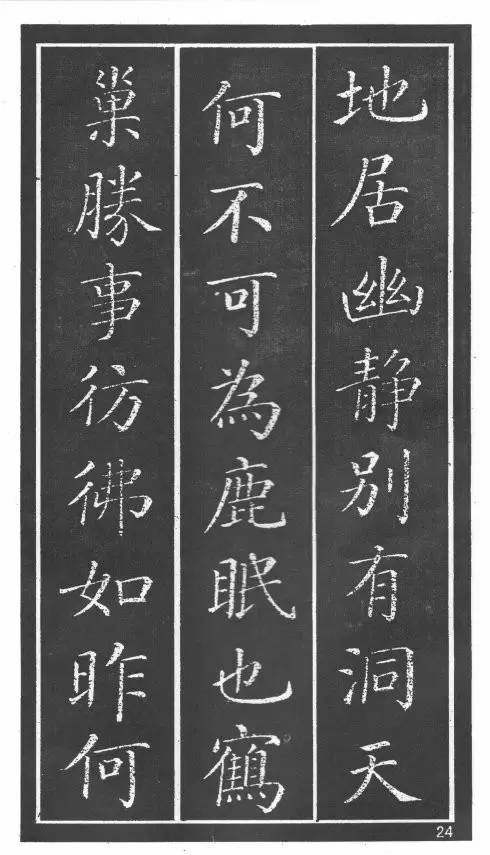 地居幽静别有洞天
何不可為鹿眠也鶴
巢勝事彷彿如昨何
24